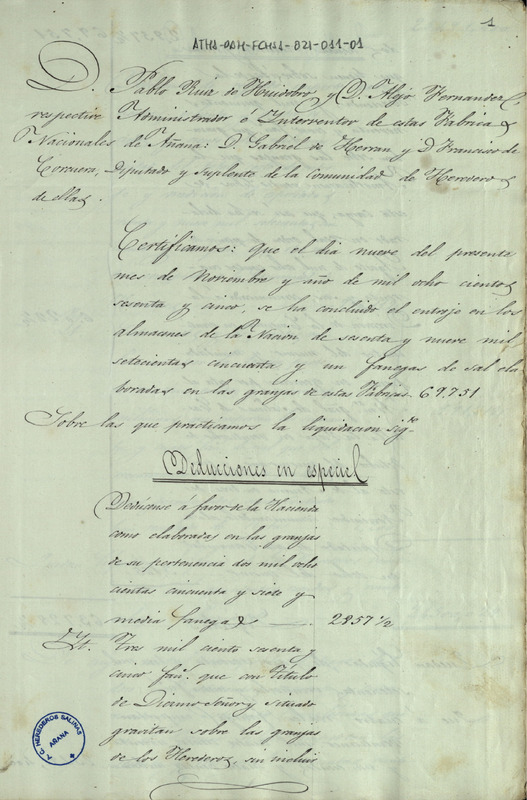 1
ATHA-DAH-FCHAA-021-011-01
D. Pablo Ruiz de Huidobro y D. Alejo Fernandez,
respective Administrador é Interventor de estas Fabricas
Nacionales de Añana: D. Gabriel de Herran y D Francisco de
Corcuera, Diputado y Suplente de la Comunidad de Herederos
de ellas.
Certificamos: Que el dia nueve del presente
mes de Noviembre y año de mil ocho cientos
sesenta y cinco, se ha concluido el entroje en los
almacenes de la Nacion de sesenta y nueve mil
setecientas cincuenta y un fanegas de sal ela
boradas en las granjas de estas Fabricas 69.751
Sobre las que practicamos la liquidacion sigte
Deducciones en especiel
Dedúcense á favor de la Hacienda
como elaboradas en las granjas
de su pertenencia dos mil ocho
cientas cincuenta y siete y
media fanegas — . 2857 1/2
Yt. Tres mil ciento sesenta y
cinco fans. que con Título
de Diezmo Señor y situado
gravitan sobre las granjas
de los Herederos, sin incluir
A.C. HEREDEROS SALINAS
AÑANA